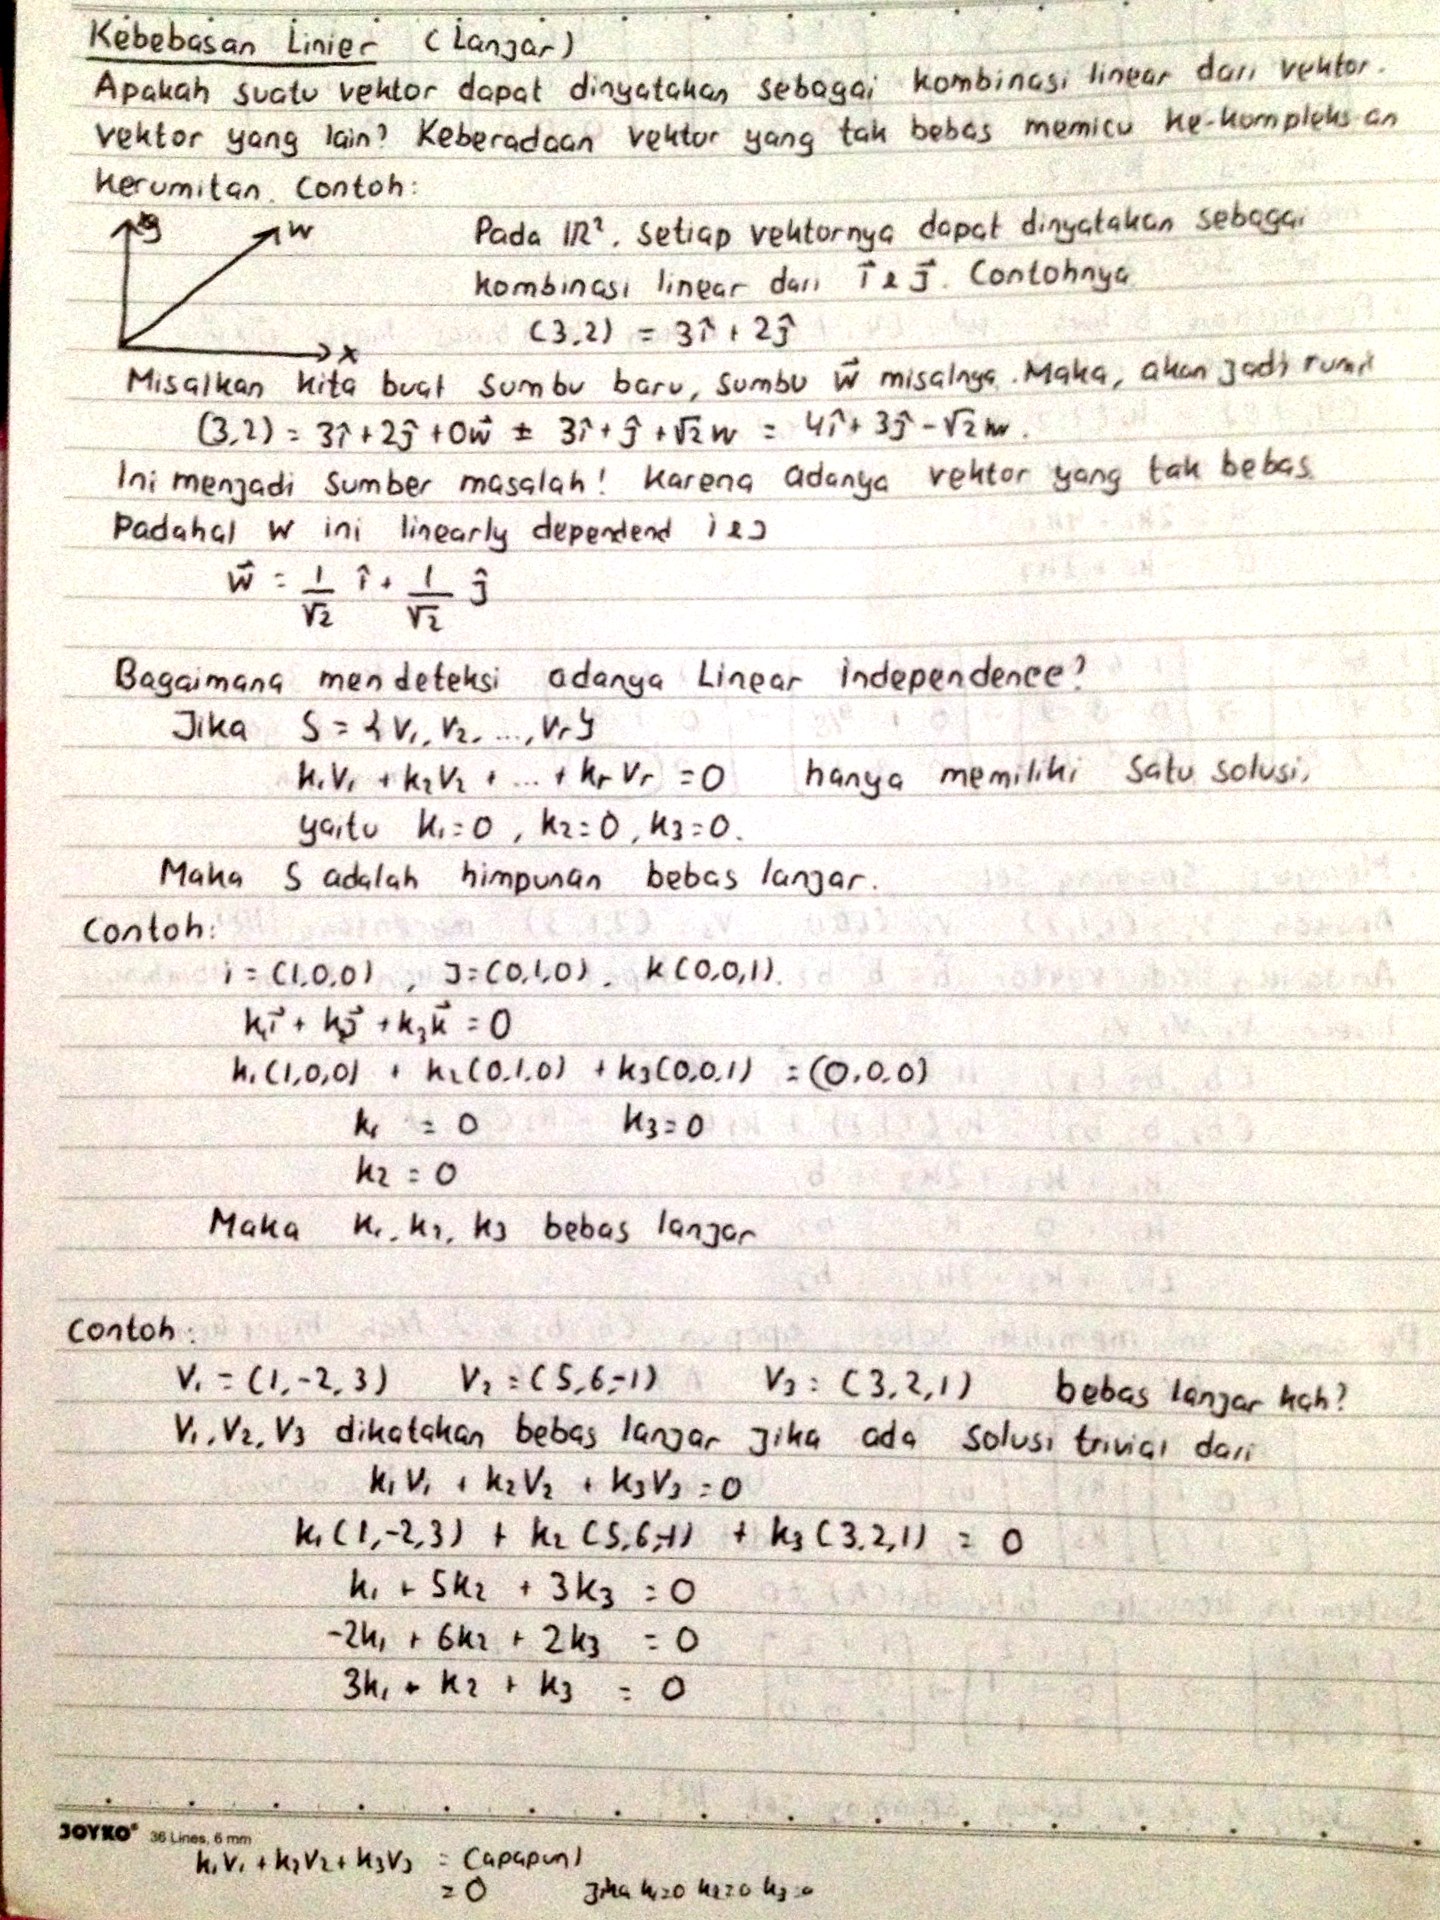 Kebebasan Linier (Lanjar)
Apakah suatu vektor dapat dinyatakan sebagai kombinasi linear dari vektor-
vektor yang lain? Keberadaan vektor yang tak bebas memicu ke-kompleks an
kerumitan. Contoh:
y
w
x
Pada ℝ², setiap vektornya dapat dinyatakan sebagai
kombinasi linear dari i⃗ & j⃗. Contohnya
(3,2) = 3î + 2ĵ
Misalkan kita buat sumbu baru, sumbu w⃗ misalnya. Maka, akan jadi rumit
(3,2) = 3î + 2ĵ + 0w⃗ = 3î + ĵ + √2 w = 4î + 3ĵ - √2 w.
Ini menjadi sumber masalah! karena adanya vektor yang tak bebas.
Padahal w ini linearly dependend i & j
w⃗ = 1/√2 î + 1/√2 ĵ
Bagaimana mendeteksi adanya Linear independence?
Jika S = {V₁, V₂, ..., Vr}
k₁V₁ + k₂V₂ + ... + krVr = 0 hanya memiliki satu solusi,
yaitu k₁=0, k₂=0, k₃=0.
Maka S adalah himpunan bebas lanjar.
Contoh:
i = (1,0,0), j=(0,1,0), k(0,0,1).
k₁i⃗ + k₂j⃗ + k₃k⃗ = 0
k₁(1,0,0) + k₂(0,1,0) + k₃(0,0,1) = (0,0,0)
k₁ = 0 k₃=0
k₂ = 0
Maka k₁, k₂, k₃ bebas lanjar
Contoh:
V₁ = (1,-2,3) V₂ = (5,6,-1) V₃ = (3,2,1) bebas lanjar kah?
V₁, V₂, V₃ dikatakan bebas lanjar jika ada solusi trivial dari
k₁V₁ + k₂V₂ + k₃V₃ = 0
k₁(1,-2,3) + k₂(5,6,-1) + k₃(3,2,1) = 0
k₁ + 5k₂ + 3k₃ = 0
-2k₁ + 6k₂ + 2k₃ = 0
3k₁ - k₂ + k₃ = 0
JOYKO® 36 Lines, 6 mm
k₁V₁ + k₂V₂ + k₃V₃ = (apapun)
= 0 jika k₁=0 k₂=0 k₃=0